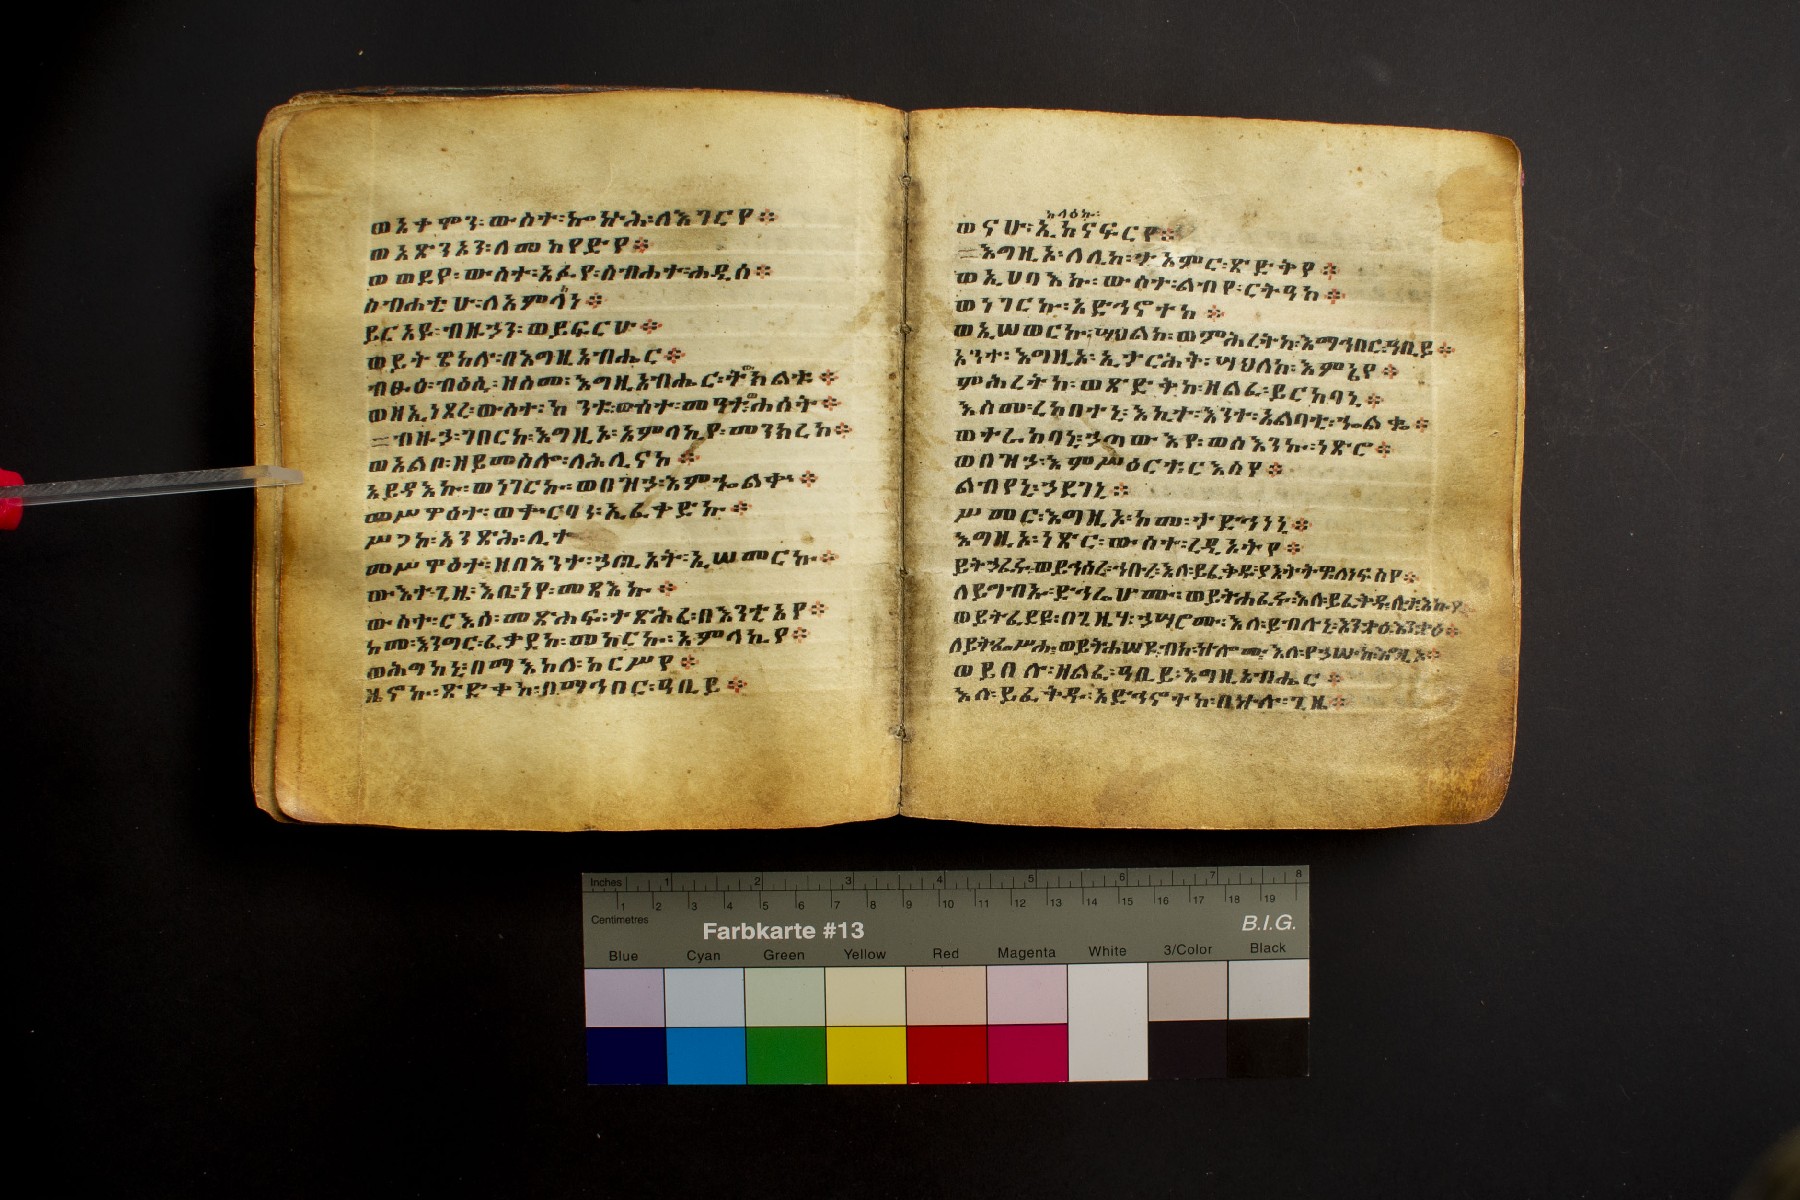 ወአቀሞን፡ውስተ፡ኰኵሕ፡ለእገርየ፨
ወአጽንአን፡ለመከየድየ፨
ወወደየ፡ውስተ፡አፉየ፡ስብሐተ፡ሐዲሰ፨
ስብሐቲሁ፡ለአምላነ፨
ይርአዩ፡ብዙኃን፡ወይፍርሁ፨
ወይትዌከሉ፡በእግዚአብሔር፨
ብፁዕ፡ብዕሲ፡ዘስመ፡እግዚአብሔር፡ትውክልቱ፨
ወዘኢነጸረ፡ውስተ፡ከንቱ፡ውስተ፡መዓት፡ሐሰት፨
ብዙኃ፡ገበርከ፡እግዚኦ፡አምላኪየ፡መንክረከ፨
ወአልቦ፡ዘይመስሎ፡ለሕሊናከ፨
አይዳእኩ፡ወነገርኩ፡ወበዝኃ፡እምኈልቍ፨
መሥዋዕተ፡ወቍርባነ፡ኢፈቀድኩ፨
ሥጋከ፡አንጽሕ፡ሊተ
መሥዋዕተ፡ዘበእንተ፡ኃጢአት፡ኢሠመርኩ፨
ውእተ፡ጊዜ፡እቤ፡ነየ፡መጻእኩ፨
ውስተ፡ርእሰ፡መጽሐፍ፡ተጽሕፈ፡በእንቲአየ፨
ከመ፡እንግር፡ፈቃደከ፡መከርኩ፡አምላኪየ፨
ወሕግከኒ፡በማእከለ፡ከርሥየ፨
ዜኖኩ፡ጽድቀከ፡በማኅበር፡ዓቢይ፨
ከላዕኩ፡
ወናሁ፡ኢከናፍርየ፨
እግዚኦ፡ለሊከ፡ታአምር፡ጽድቅየ፨
ወኢሀባእኩ፡ውስተ፡ልብየ፡ርትዓከ፨
ወነገርኩ፡አድኅኖተከ፨
ወኢሠወርኩ፡ሣህልከ፡ወምሕረትከ፡እማኅበር፡ዓቢይ፨
አንተ፡እግዚኦ፡ኢታርሕት፡ሣህለከ፡እምኔየ፨
ምሕረትከ፡ወጽድቅከ፡ዘልፈ፡ይርከባኒ፨
እስመ፡ረከበተኒ፡እኪት፡እንተ፡አልባቲ፡ኈልቈ፨
ወተራከባኒ፡ኃጣውእየ፡ወስእንኩ፡ነጽሮ፨
ወበዝኃ፡እምሥዕርተ፡ርእስየ፨
ልብየኒ፡ኃደገኒ፨
ሥመር፡እግዚኦ፡ከመ፡ታድኅነኒ፨
እግዚኦ፡ነጽር፡ውስተ፡ረዲኦትየ፨
ይትኃፈሩ፡ወይኅሰሩ፡ኅቡረ፡እለ፡ይፈቅዱ፡ያእትትዋ፡ለነፍስየ፨
ለይግብኡ፡ድኅሬሆሙ፡ወይትሐፈሩ፡እለ፡ይፈቅዱ፡ሊተ፡እኩየ፨
ወይትፈደዩ፡በጊዜሃ፡ኃፍሮሙ፡እለ፡ይብሉኒ፡እንቋዕ፡እንቋዕ፨
ለይትፌሥሑ፡ወይትሐሠዩ፡ብከ፡ኵሎሙ፡እለ፡የኃሡከ፡እግዚኦ፨
ወይበሉ፡ዘልፈ፡ዓቢይ፡እግዚአብሔር፨
እለ፡ይፈቅዱ፡አድኅኖተከ፡በኵሉ፡ጊዜ፨
Inches 1 2 3 4 5 6 7 8
1 2 3 4 5 6 7 8 9 10 11 12 13 14 15 16 17 18 19
Centimetres
Farbkarte #13 B.I.G.
Blue Cyan Green Yellow Red Magenta White 3/Color Black